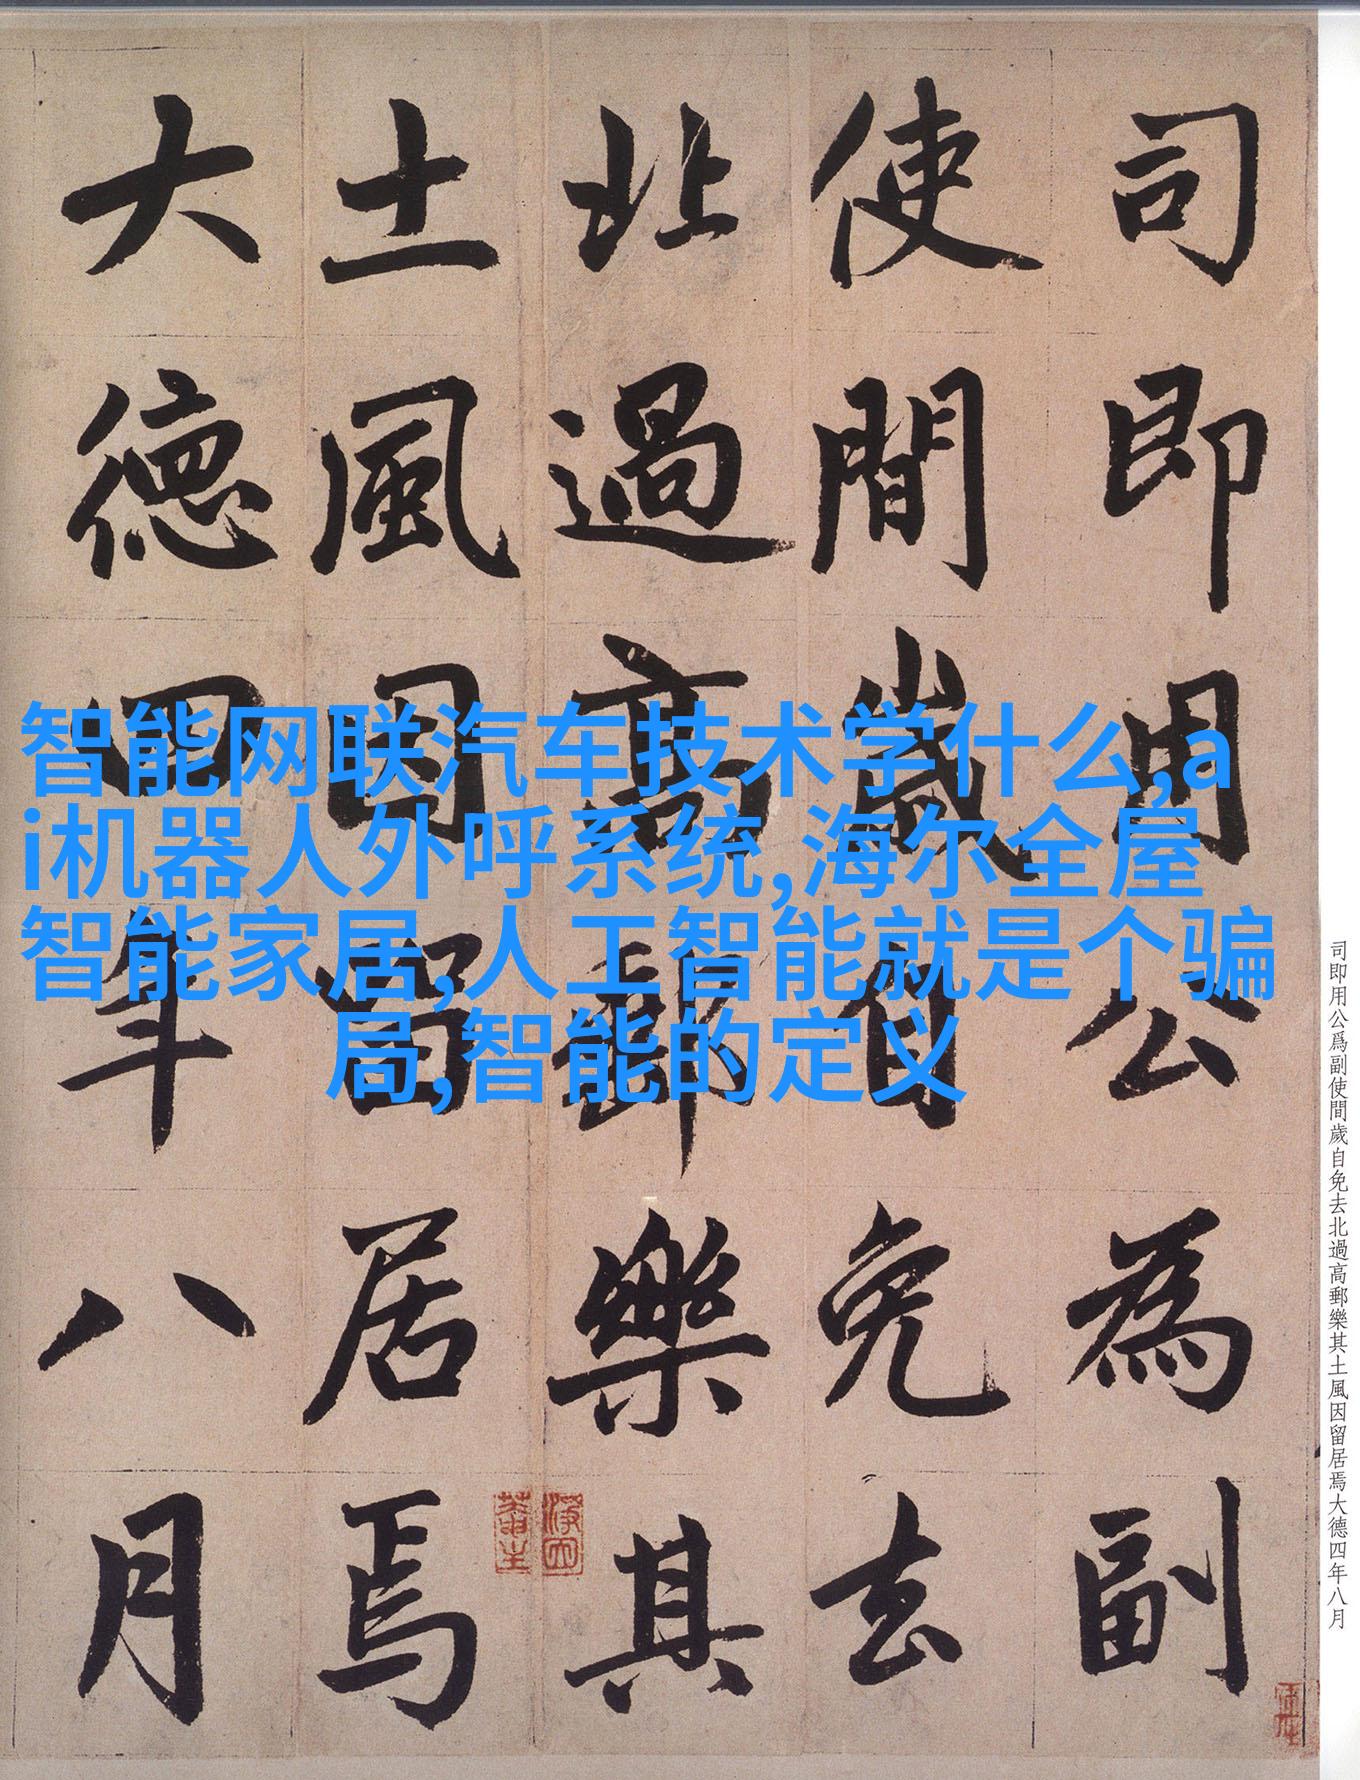 司即用公為副
使間歲自免去
北過高郵樂其
土風因留居焉
大德四年八月
智能网联汽车技术学什么,a
i机器人外呼系统,海尔全屋
智能家居,人工智能就是个骗
局,智能的定义
司即用公爲副使間歲自免去北過高郵樂其土風因留居焉大德四年八月